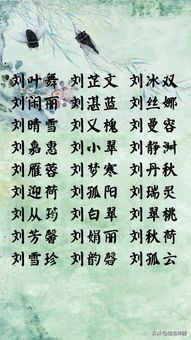 刘叶舞 刘芷文 刘冰双
刘闲丽 刘湛蓝 刘丝娜
刘晴雪 刘又槐 刘曼容
刘嘉惠 刘小翠 刘静洲
刘雁蓉 刘梦寒 刘丹秋
刘迎荷 刘孤阳 刘瑞灵
刘从筠 刘白翠 刘翠桃
刘芳馨 刘娟丽 刘秋荷
刘雪珍 刘韵磬 刘孤云